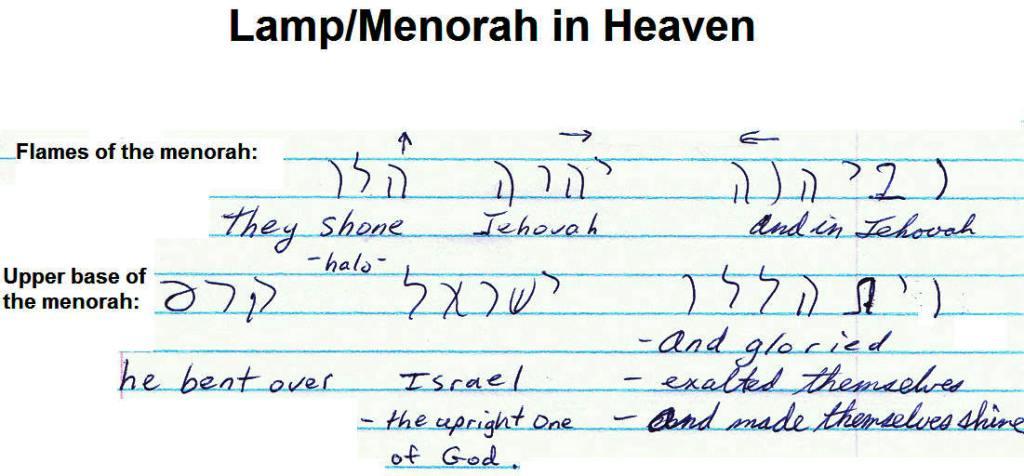 Lamp/Menorah in Heaven
↑ → ←
Flames of the menorah:
וביהוה יהוה הלו
They shone Jehovah And in Jehovah
-halo-
Upper base of
the menorah:
ויתהללו ישראל קרס
- And gloried
he bent over Israel - exalted themselves
- the upright One - and made themselves shine
of God.